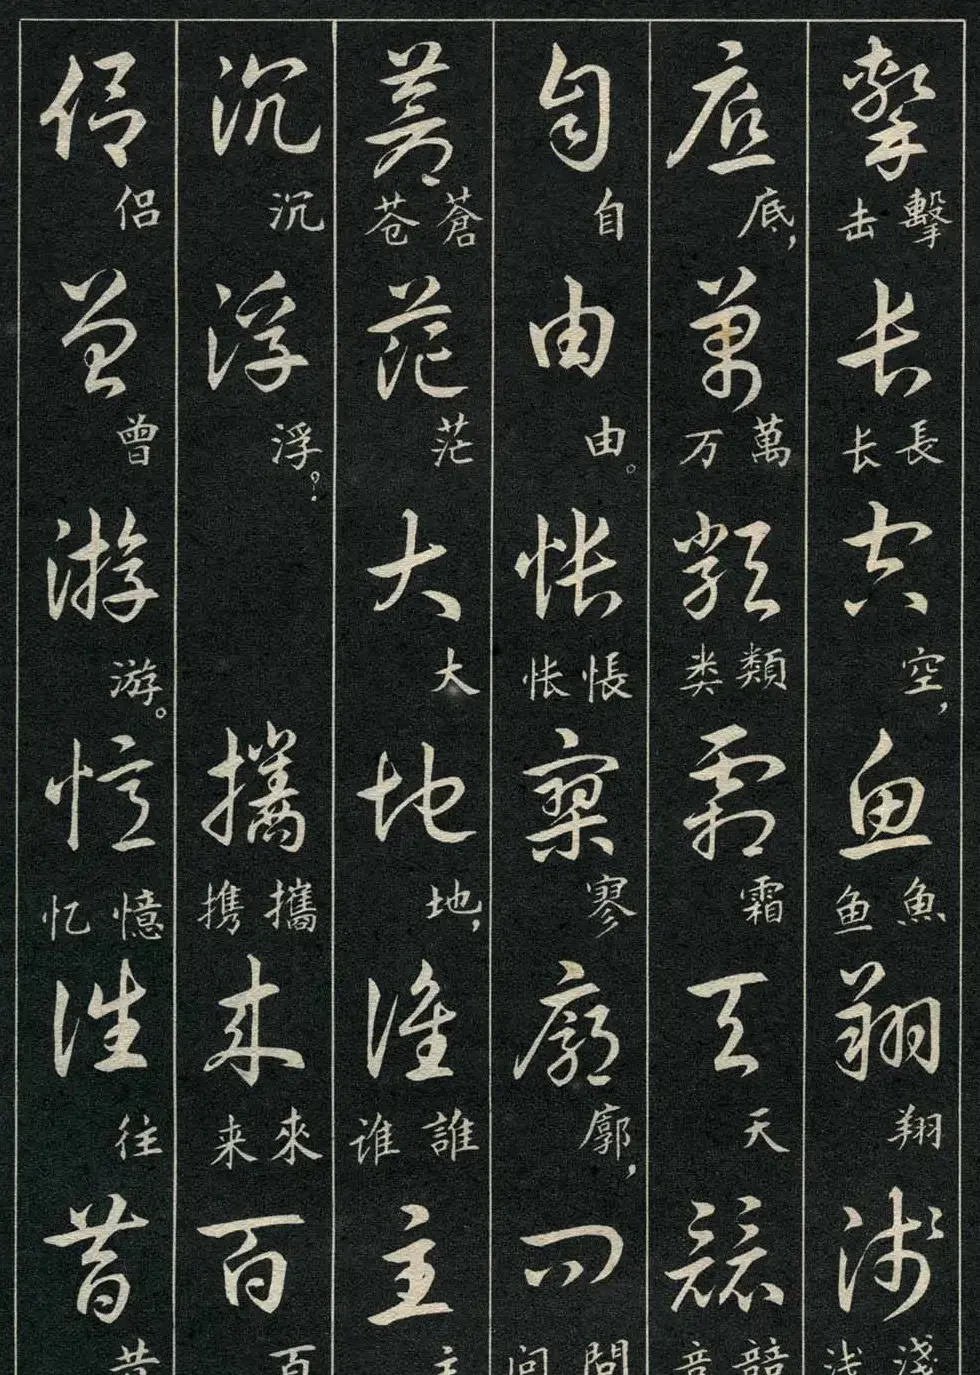 擊長空魚翔淺
擊击長长空，魚鱼翔淺浅
底萬類霜天競
底，萬万類类霜天競竞
自由悵寥廓問
自由。悵怅寥廓，問问
蒼茫大地誰主
蒼苍茫大地，誰谁主
沉浮攜來百
沉浮？攜携來来百
侣曾游憶往昔
侣曾游。憶忆往昔